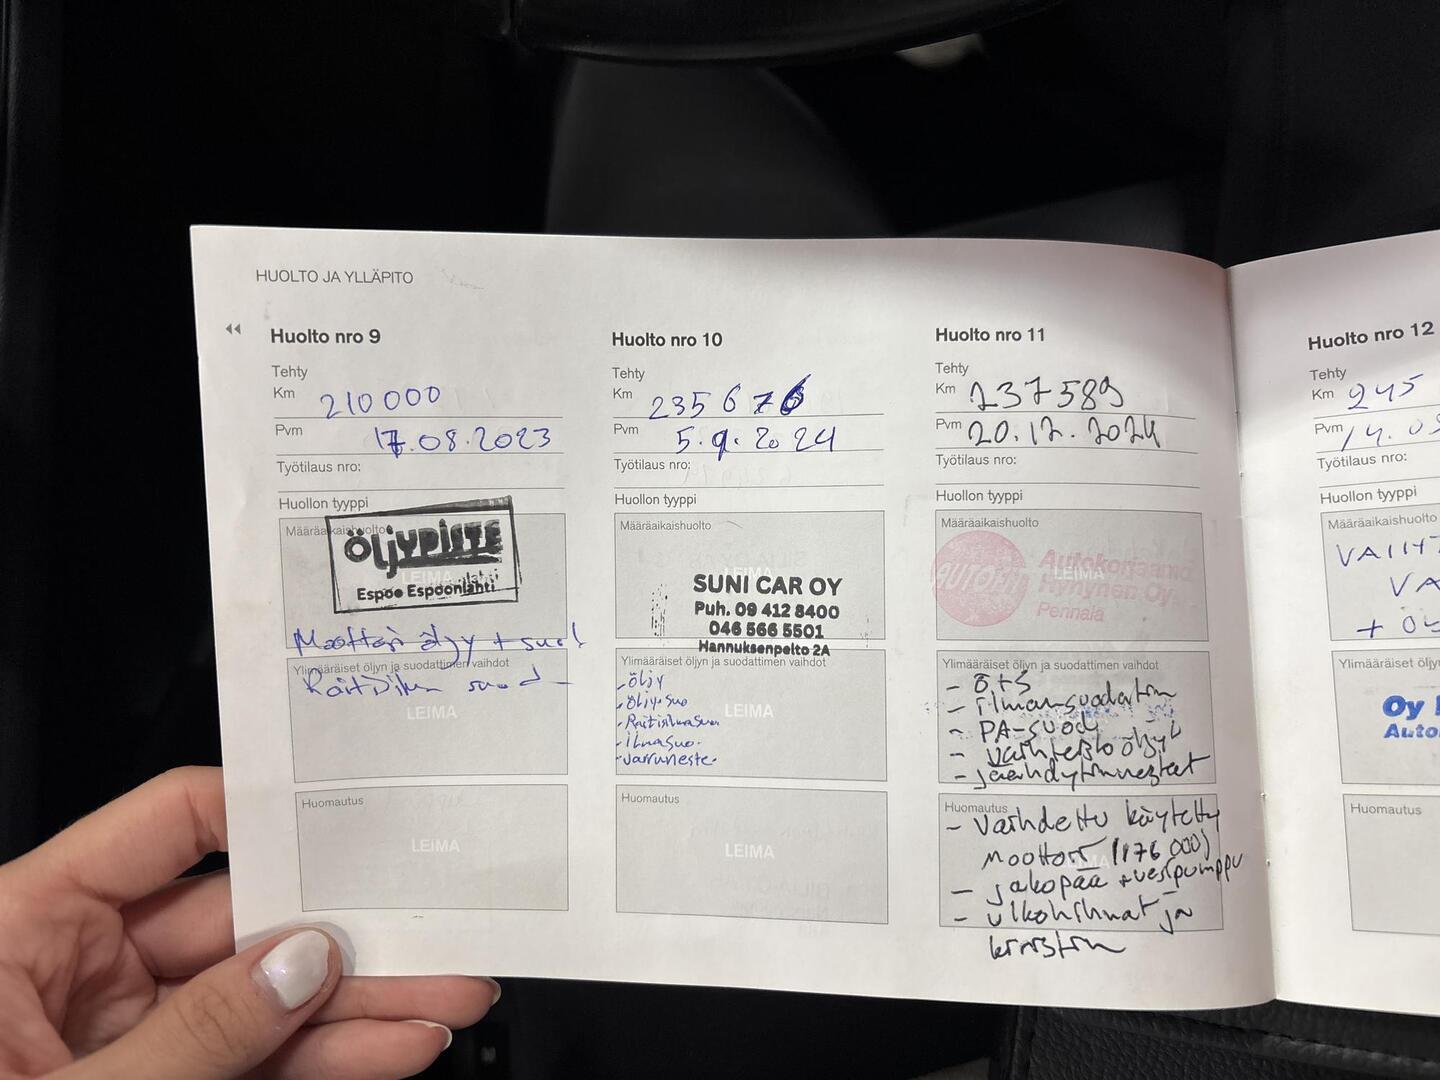 HUOLTO JA YLLÄPITO
Huolto nro 9
Tehty
Km 210000
Pvm 17.08.2023
Työtilaus nro:
Huollon tyyppi
Määräaikaishuolto
ÖLJYPISTE
LEIMA
Espoo Espoonlahti
Moottori öljy + suod
Ylimääräiset öljyn ja suodattimen vaihdot
suod
LEIMA
Huomautus
LEIMA
Huolto nro 10
Tehty
Km 235676
Pvm 5.9.2024
Työtilaus nro:
Huollon tyyppi
Määräaikaishuolto
LEIMA
SUNI CAR OY
Puh. 09 412 8400
046 566 5501
Hannuksenpelto 2A
Ylimääräiset öljyn ja suodattimen vaihdot
- öljy
- öljysuo
- Raitisilmasuo
- ilmasuo.
- Jarruneste.
LEIMA
Huomautus
LEIMA
Huolto nro 11
Tehty
Km 237589
Pvm 20.12.2024
Työtilaus nro:
Huollon tyyppi
Määräaikaishuolto
AUTOFIT
Autokorjaamo
LEIMA
Hyhynen Oy
Pennala
Ylimääräiset öljyn ja suodattimen vaihdot
- ö+s
- ilmansuodatin
- PA-suod
- vaihteistoöljyt
- jäähdytinnesteet
Huomautus
- Vaihdettu käytetty
moottori (176 000)
- jakopää + vesipumppu
- ulkohihnat ja
kiristin
Huolto nro 12
Tehty
Km 245
Pvm 14.05
Työtilaus nro:
Huollon tyyppi
Määräaikaishuolto
VA
+ ÖL
Ylimääräiset öljyn ja suodattimen
Oy
Auto
Huomautus